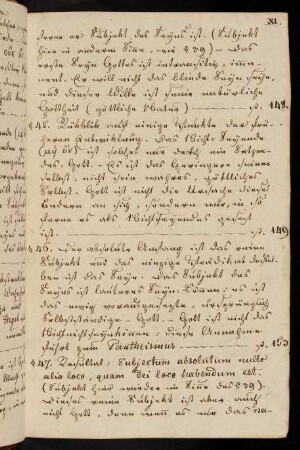 XI.
ferne er Subjekt des Seyns ist. (Subjekt
hier in anderm Sinn, wie § 39) – Das
erste Seyn Gottes ist intransitiv, imma-
nent. Er will nicht das blinde Seyn seyn,
und dieser Wille ist seine natürliche
Gottheit (göttliche Natur) p. 148.
§ 45. Rückblick auf einige Punkte der frü-
heren Entwicklung. Das Nicht-Seyende
(μὴ ὄν) ist solches nur durch ein
Gott. Es ist das Geringere seiner
selbst, nicht sein wahres, göttliches
Selbst. Gott ist nicht die Ursache dieses
Andern an sich, sondern nur, in so
ferne es als Nichtseyendes gesetzt
ist. p. 149
§ 46. Der absolute Anfang ist das reine
Subjekt und das einzige Praedikat desselben
ist das Seyn. Das Subjekt des
Seyns ist lauteres Seyn-Können; es ist
das ewig vorausgesetzte, ursprünglich
Selbstständige. Gott. Gott ist nicht das
Nichtseyn; diese Annahme
führt zum Pantheismus p. 153
§ 47. Resultat: Subjectum absolutum nullo
alio loco, quam Dei loco habendum est.
(Subjekt hier wieder im Sinne des § 39)
Dieses reine Subjekt ist aber auch
nicht Gott, denn wenn es nur das na-